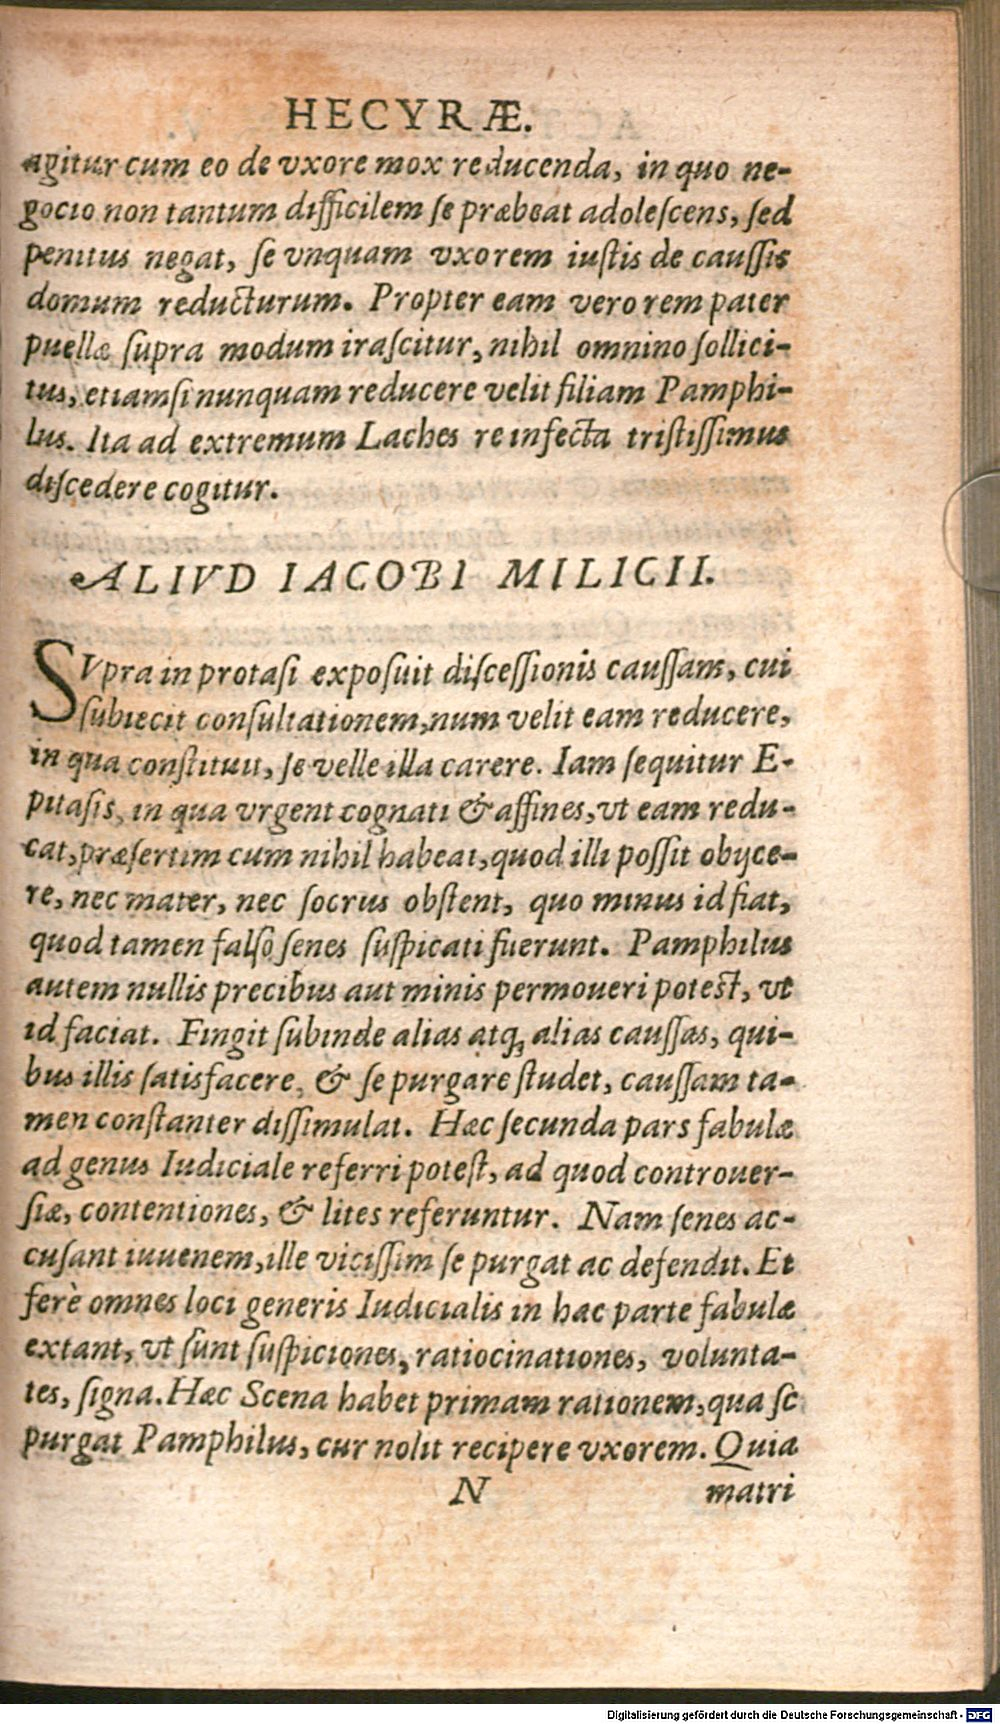 HECYRÆ.
agitur cum eo de vxore mox reducenda, in quo ne-
gocio non tantum difficilem ſe præbeat adoleſcens, ſed
penitus negat, ſe vnquam vxorem iuſtis de cauſſis
domum reducturum. Propter eam vero rem pater
puellæ ſupra modum iraſcitur, nihil omnino ſollici-
tus, etiamſi nunquam reducere velit filiam Pamphi-
lus. Ita ad extremum Laches re infecta triſtiſſimus
diſcedere cogitur.
ALIVD IACOBI MILICII.
SVpra in protaſi expoſuit diſceſſionis cauſſam, cui
ſubiecit conſultationem, num velit eam reducere,
in qua conſtituit, ſe velle illa carere. Iam ſequitur E-
pitaſis, in qua vrgent cognati & affines, vt eam redu-
cat, præſertim cum nihil habeat, quod illi poſſit obijce-
re, nec mater, nec ſocrus obſtent, quo minus id fiat,
quod tamen falſo ſenes ſuſpicati fuerunt. Pamphilus
autem nullis precibus aut minis permoueri poteſt, vt
id faciat. Fingit ſubinde alias atq; alias cauſſas, qui-
bus illis ſatisfacere, & ſe purgare ſtudet, cauſſam ta-
men conſtanter diſſimulat. Hæc ſecunda pars fabulæ
ad genus Iudiciale referri poteſt, ad quod controuer-
ſiæ, contentiones, & lites referuntur. Nam ſenes ac-
cuſant iuuenem, ille viciſſim ſe purgat ac defendit. Et
ferè omnes loci generis Iudicialis in hac parte fabulæ
extant, vt ſunt ſuſpiciones, ratiocinationes, volunta-
tes, ſigna. Hæc Scena habet primam rationem, qua ſe
purgat Pamphilus, cur nolit recipere vxorem. Quia
N matri
Digitalisierung gefördert durch die Deutsche Forschungsgemeinschaft - DFG